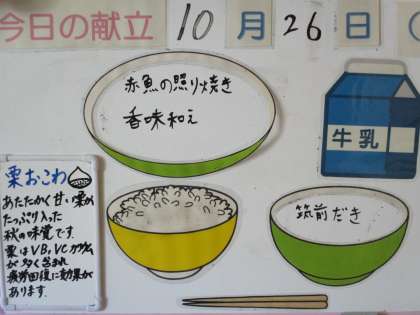 今日の献立 10月26日(
赤魚の照り焼き
香味和え
牛乳
栗おこわ
あたたかく甘い栗が
たっぷり入った
秋の味覚です。
栗はVB₁,VC,カリウム
が多く含まれ
疲労回復に効果が
あります。
筑前だき